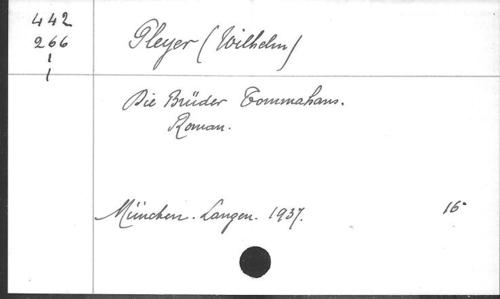 442
266
1
1
Pleyer (Wilhelm)
Die Brüder Tommahans.
Roman.
München. Langen. 1937. 16